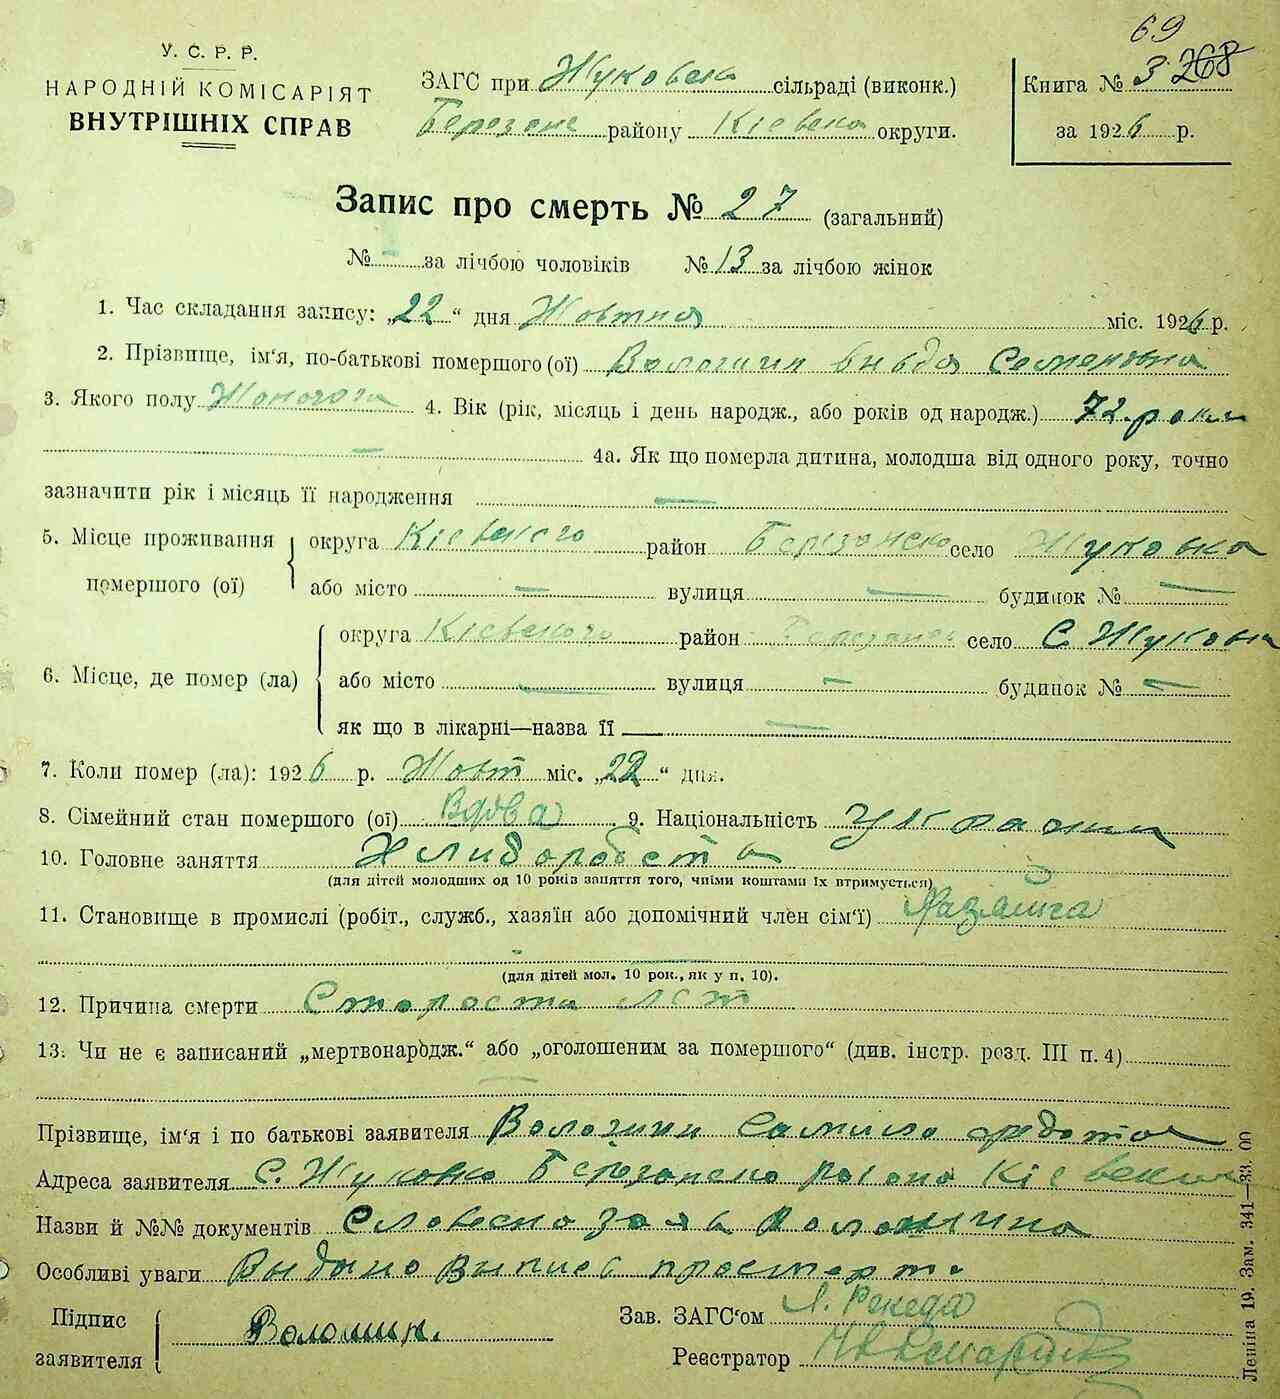 69
У. С. Р. Р.
НАРОДНІЙ КОМІСАРІЯТ
ВНУТРІШНІХ СПРАВ
ЗАГС при Жуковска сільраді (виконк.)
Березане району Кіевска округи.
Книга № 3 268
за 1926 р.
Запис про смерть № 27 (загальний)
№ - за лічбою чоловіків № 13 за лічбою жінок
1. Час складання запису: „22“ дня Жовтня міс. 1926 р.
2. Прізвище, ім'я, по-батькові помершого (ої) Волошин Семеновна
3. Якого полу Жоночога 4. Вік (рік, місяць і день народж., або років од народж.) 72 роки
— 4а. Як що померла дитина, молодша від одного року, точно
зазначити рік і місяць її народження —
5. Місце проживання помершого (ої) округа Кіевского район Берізанско село Жуковка
або місто — вулиця — будинок № —
6. Місце, де помер (ла) округа Кіевского район Березанск село С. Жуковка
або місто — вулиця — будинок № —
як що в лікарні—назва її —
7. Коли помер (ла): 1926 р. Жовт міс. „22“ дня.
8. Сімейний стан помершого (ої) Вдова 9. Національність Украин
10. Головне заняття Хлиборобств
(для дітей молодших од 10 років заняття того, чиїми коштами їх втримується)
11. Становище в промислі (робіт., служб., хазяїн або допомічний член сім'ї) Хазяйка
(для дітей мол. 10 рок., як у п. 10).
12. Причина смерти Старости лєт
13. Чи не є записаний „мертвонародж.“ або „оголошеним за помершого“ (див. інстр. розд. III п. 4)
—
Прізвище, ім'я і по батькові заявителя Волошин
Адреса заявителя С. Жуковка Берізанско раіона Кіевск
Назви й №№ документів Словесно заяв Волошина
Особливі уваги Видано Випис про смерть
Підпис заявителя Волошин.
Зав. ЗАГС'ом
Реєстратор
Леніна 19. Зам. 341—33.00